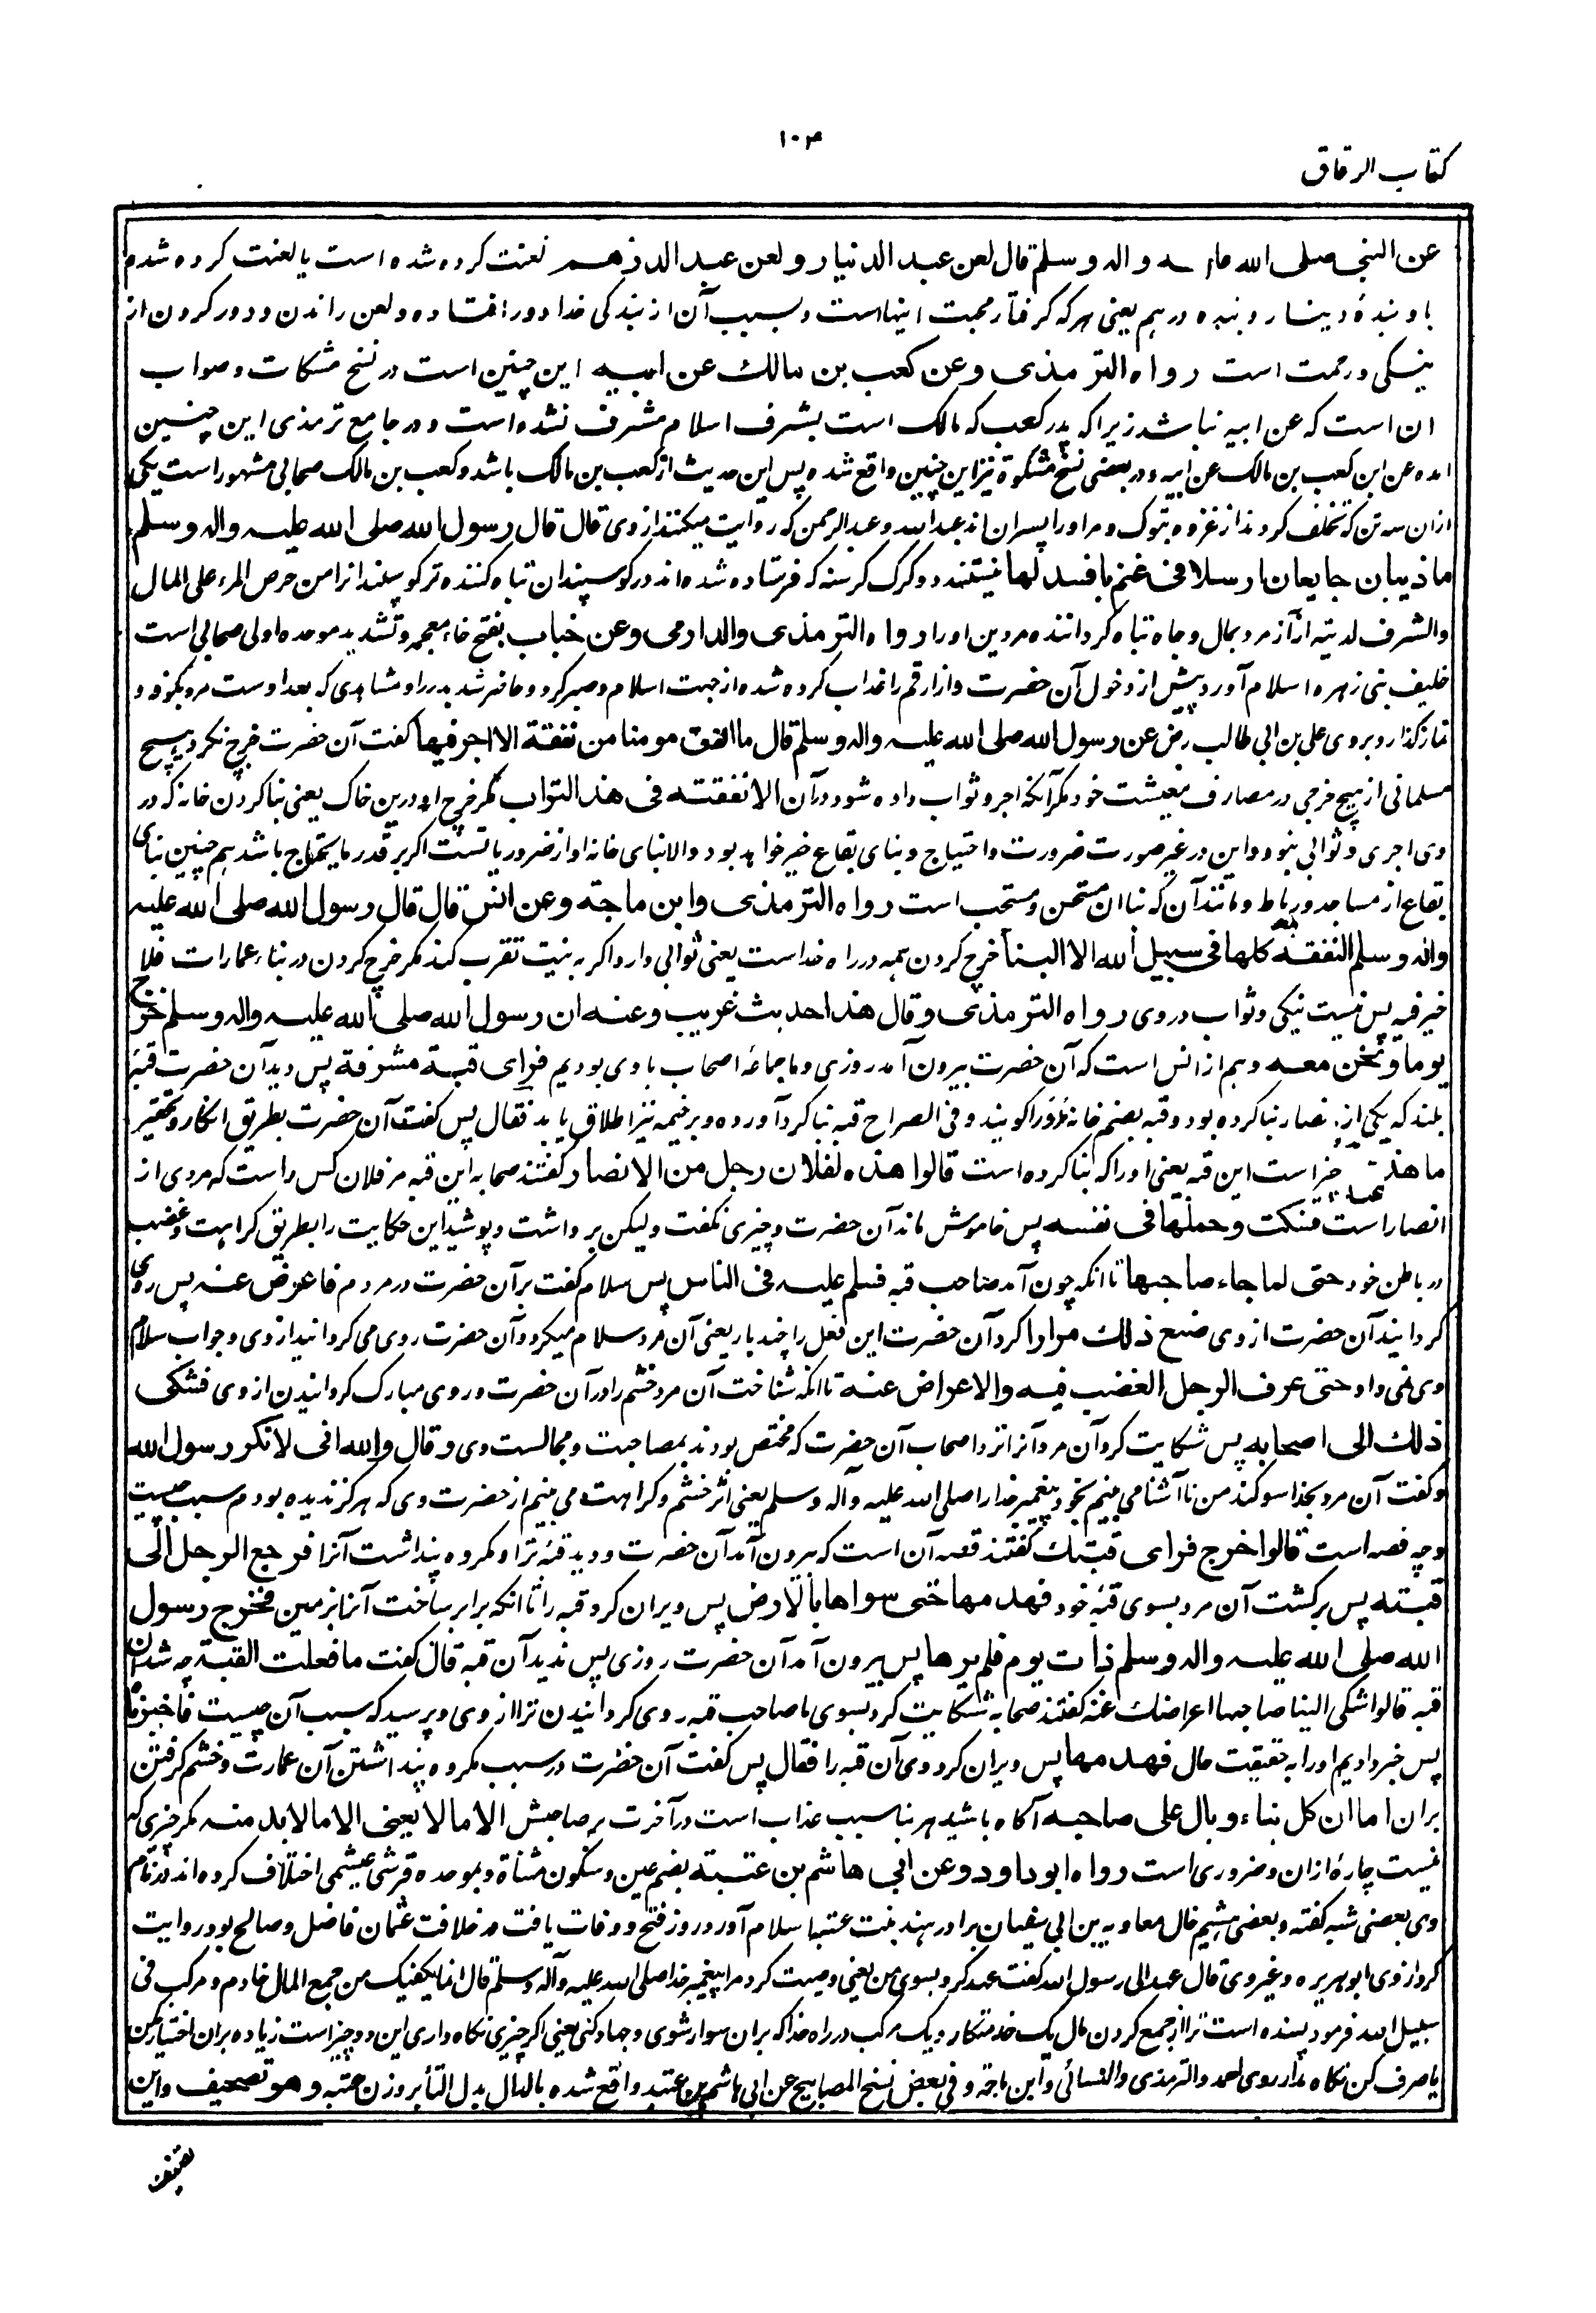 ۱۰۴
کتاب الرقاق
عن النبی صلی الله علیه واله وسلم قال لعن عبد الدنیار ولعن عبد الدرهم لعنت کرده شده است یا لعنت کرده شدم
باد بندهٔ دینار و بنده درهم یعنی هرکه گرفتار محبت اینهااست و بسبب آن از بندگی خدا دور افتاده و لعن راندن و دور کردن از
نیکی و رحمت است رواه الترمذی وعن کعب بن مالک عن ابیه این چنین است در نسخ مشکات و صواب
ان است که عن ابیه نباشد زیراکه پدر کعب که مالک است بشرف اسلام مشرف نشده است و در جامع ترمذی این چنین
امده عن ابن کعب بن مالک عن ابیه و در بعضی نسخ مشکوة نیز این چنین واقع شده پس این حدیث از کعب بن مالک باشد و کعب بن مالک صحابی مشهور است یکی
ازان سه تن که تخلف کردند از غزوه تبوک و مر اورا پسران اند عبدالله و عبدالرحمن که روایت میکنند از وی قال قال رسول الله صلی الله علیه واله وسلم
ماذیبان جایعان ارسلا فی غنم بافسد لها نیستند دو گرگ گرسنه که فرستاده شده اند در گوسپندان تباه کننده تر گوسپندانرا من حرص المرء علی المال
والشرف لدینه از آز مرد بمال و جاه تباه گرداننده مر دین او را رواه الترمذی والدارمی وعن خباب بفتح خاء معجمه و تشدید موحده اولی صحابی است
حلیف بنی زهره اسلام آورد پیش از دخول آن حضرت دار ارقم را عذاب کرده شده از جهت اسلام و صبر کرد و حاضر شد بدر را و مشاهدی که بعد اوست مرد بکوفه و
نماز گذارد بروی علی بن ابی طالب رض عن رسول الله صلی الله علیه واله وسلم قال ما انفق مومنا من نفقة الا اجر فیها گفت آن حضرت خرج نکرد هیچ
مسلمانی از هیچ خرجی در مصارف معیشت خود مگر آنکه اجر و ثواب داده شود در آن الا نفقته فی هذا التراب مگر خرج او درین خاک یعنی بنا کردن خانه که در
وی اجری و ثوابی نبود و این در غیر صورت ضرورت و احتیاج و بنای بقاع خیر خواهد بود والا بنای خانه او از ضروریاتست اگر بر قدر مایحتاج باشد هم چنین بنای
بقاع از مساجد و رباط و مانند آن که بنا ان مستحسن و مستحب است رواه الترمذی وابن ماجة وعن انس قال قال رسول الله صلی الله علیه
واله وسلم النفقة کلها فی سبیل الله الا البنا خرج کردن همه در راه خداست یعنی ثوابی دارد اگر به نیت تقرب کند مگر خرج کردن در بناء عمارات فلا
خیر فیه پس نیست نیکی و ثواب دروی رواه الترمذی وقال هذا حدیث غریب وعنه ان رسول الله صلی الله علیه واله وسلم خرج
یوما ونحن معه و هم از انس است که آن حضرت بیرون آمد روزی و ما جماعهٔ اصحاب با وی بودیم فرای قبة مشرفة پس دید آن حضرت قبهٔ
بلند که یکی از انصار بنا کرده بود و قبه بضم خانه مدور را گویند و فی الصراح قبه بنا گرد آورده و بر خیمه نیز اطلاق یابد فقال پس گفت آن حضرت بطریق انکار و تحقیر
ما هذه چیز است این قبه یعنی اورا که بنا کرده است قالوا هذه لفلان رجل من الانصار گفتند صحابه این قبه مر فلان کس راست که مردی از
انصار است فسکت وحملها فی نفسه پس خاموش ماند آن حضرت و چیزی نگفت ولیکن برداشت و پوشید این حکایت را بطریق کراهت و غضب
در باطن خود حتی لما جاء صاحبها تا آنکه چون آمد صاحب قبه فسلم علیه فی الناس پس سلام گفت برآن حضرت در مردم فاعرض عنه پس روی
گردانید آن حضرت از وی صنع ذلک مرارا کرد آن حضرت این فعل را چند بار یعنی آن مرد سلام میکرد و آن حضرت روی می گردانید از وی و جواب سلام
وی نمی داد حتی عرف الرجل الغضب فیه والاعراض عنه تا آنکه شناخت آن مرد خشم را در آن حضرت و روی مبارک گردانیدن از وی فشکی
ذلک الی اصحابه پس شکایت کرد آن مرد آنرا نزد اصحاب آن حضرت که مختص بودند بمصاحبت و مجالست وی وقال والله انی لانکر رسول الله
و گفت آن مرد بخدا سوگند من نا آشنا می بینم بخود پیغمبر خدا را صلی الله علیه وآله وسلم یعنی اثر خشم و کراهت می بینم از حضرت وی که هرگز ندیده بودم سبب چیست
و چه قصه است قالوا خرج فرای قبتک گفتند قصه آن است که بیرون آمد آن حضرت و دید قبهٔ ترا و مکروه پنداشت آنرا فرجع الرجل الی
قبته پس برگشت آن مرد بسوی قبهٔ خود فهدمها حتی سواها بالارض پس ویران کرد قبه را تا آنکه برابر ساخت آنرا بزمین فخرج رسول
الله صلی الله علیه واله وسلم ذات یوم فلم یرها پس بیرون آمد آن حضرت روزی پس ندید آن قبه قال گفت ما فعلت القبة چه شد ان
قبه قالوا شکی الینا صاحبها اعراضک عنه گفتند صحابه شکایت کرد بسوی ما صاحب قبه روی گردانیدن ترا از وی و پرسید که سبب آن چیست فاخبرناه
پس خبر دادیم اورا به حقیقت حال فهدمها پس ویران کرد وی آن قبه را فقال پس گفت آن حضرت در سبب مکروه پنداشتن آن عمارت و خشم گرفتن
بران اما ان کل بناء وبال علی صاحبه آگاه باشید هر بنا سبب عذاب است در آخرت بر صاحبش الا مالا یعنی الا مالا بد منه مگر چیزی که
نیست چارهٔ ازان و ضروری است رواه ابوداود وعن ابی هاشم بن عتبة بضم عین و سکون مثناة و بموحده قرشی عبشمی اختلاف کرده اند در نام
وی بعضی شیبه گفته و بعضی هشیم خال معاویه بن ابی سفیان برادر هند بنت عتبه اسلام آورد روز فتح و وفات یافت در خلافت عثمان فاضل و صالح بود روایت
کرد از وی ابوهریره و غیر وی قال عهد الی رسول الله گفت عهد کرد بسوی من یعنی وصیت کرد مرا پیغمبر خدا صلی الله علیه وآله وسلم قال انما یکفیک من جمع المال خادم و مرکب فی
سبیل الله فرمود بسنده است ترا از جمع کردن مال یک خدمتگار و یک مرکب در راه خدا که بران سوار شوی و جهاد کنی یعنی اگر چیزی نگاه داری این دو چیز است زیاده بران اختیار مکن
یا صرف کن نگاه مدار روی احمد والترمذی والنسائی وابن ماجة وفی بعض نسخ المصابیح عن ابی هاشم بن عتبد واقع شده بالدال بدل التا بروزن عتبه وهو تصحیف و این